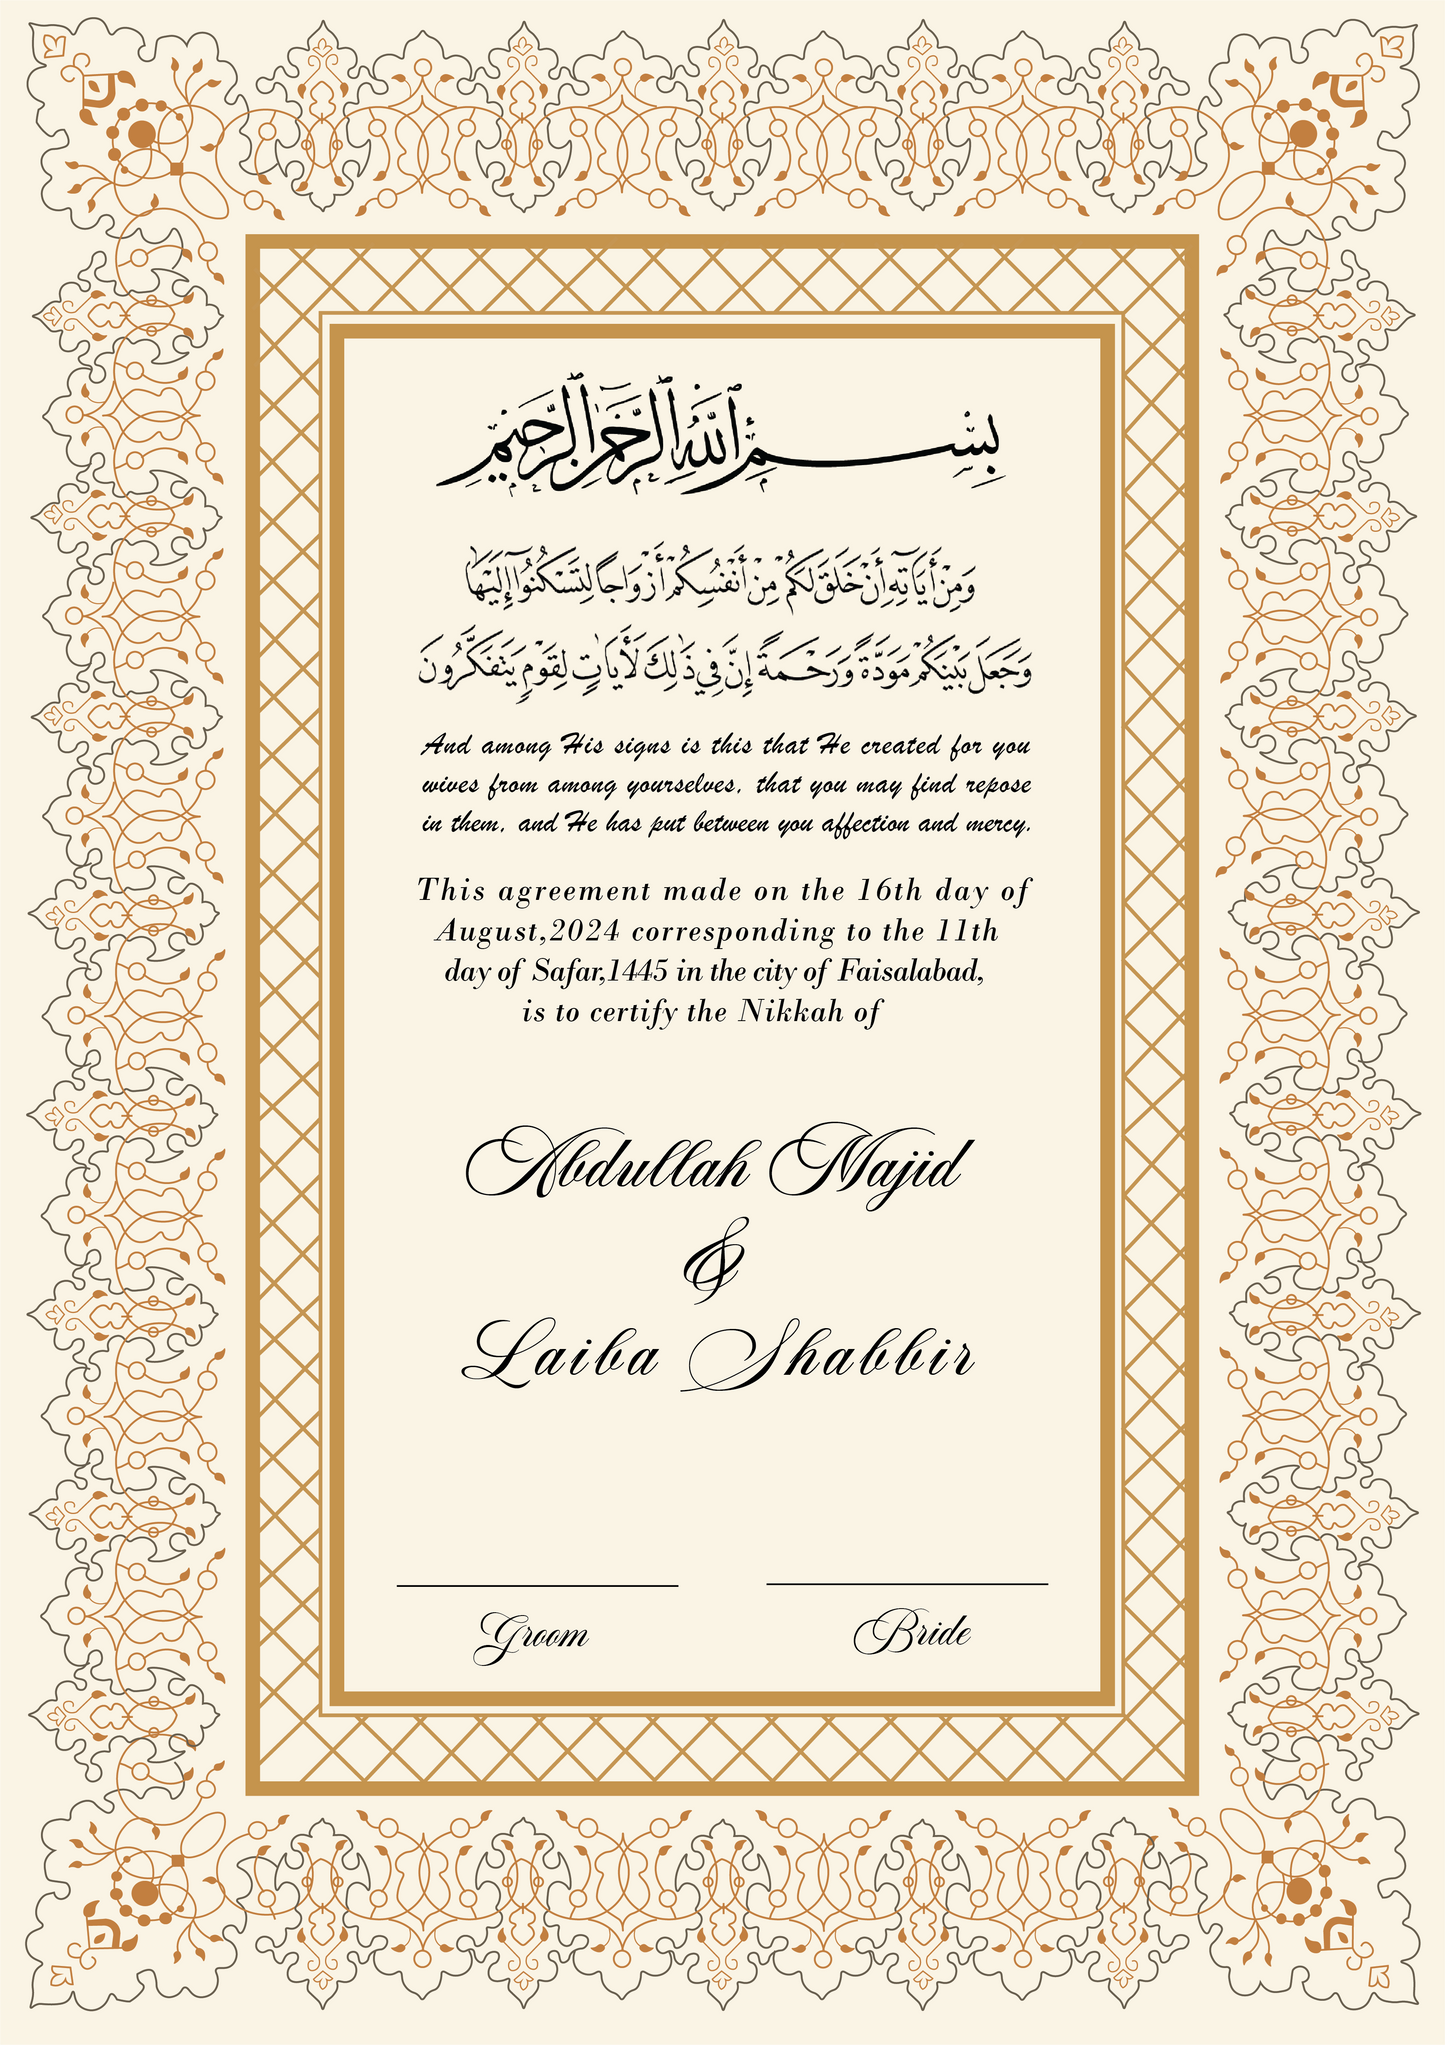 بِسْمِ ٱللَّهِ ٱلرَّحْمَٰنِ ٱلرَّحِيمِ
وَمِنْ أَيَاتِهِ أَنْ خَلَقَ لَكُمْ مِنْ أَنْفُسِكُمْ أَزْوَاجًا لِتَسْكُنُوا إِلَيْهَا
وَجَعَلَ بَيْنَكُمْ مَوَدَّةً وَرَحْمَةً إِنَّ فِي ذَٰلِكَ لَأَيَاتٍ لِقَوْمٍ يَتَفَكَّرُونَ
And among His signs is this that He created for you
wives from among yourselves, that you may find repose
in them, and He has put between you affection and mercy.
This agreement made on the 16th day of
August,2024 corresponding to the 11th
day of Safar,1445 in the city of Faisalabad,
is to certify the Nikkah of
Abdullah Majid
&
Laiba Shabbir
Groom
Bride